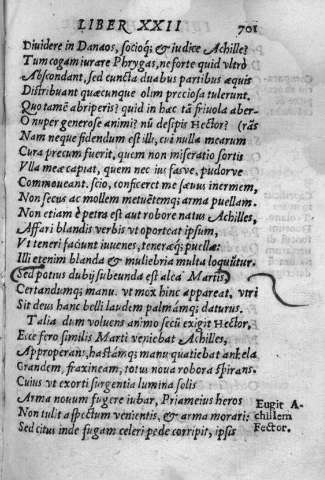 LIBER XXII 701
Diuidere in Danaos, socioq; & iudice Achille?
Tum cogam iurare Phrygas, ne forte quid vltrò
Abscondant, sed cuncta duabus partibus æquis
Distribuant quæcunque olim preciosa tulerunt.
Quo tamē abriperis? quid in hac tā friuola aber-
O nuper generose animi? nū desipis Hector? (rās
Nam neque fidendum est illi, cui nulla mearum
Cura precum fuerit, quem non miseratio sortis
Vlla meæ capiat, quem nec ius fasve, pudorve
Commoueant. scio, conficeret me sæuus inermem,
Non secus ac mollem metuētemq; arma puellam.
Non etiam è petra est aut robore natus Achilles,
Affari blandis verbis vt oporteat ipsum,
Vt teneri faciunt iuuenes, teneræq; puellæ:
Illi etenim blanda & muliebria multa loquūtur.
Sed potius dubij subeunda est alea Martis,
Certandumq; manu. vt mox hinc appareat, vtri
Sit deus hanc belli laudem palmāmq; daturus.
Talia dum voluens animo secū exigit Hector,
Ecce fero similis Marti veniebat Achilles,
Approperans, hastāmq; manu quatiebat anhela
Grandem, fraxineam, totus noua robora spirans.
Cuius vt exorti surgentia lumina solis
Arma nouum fugere iubar, Priameius heros
Non tulit aspectum venientis, & arma morari:
Sed citus inde fugam celeri pede corripit, ipsis
Fugit A-
chillem
Hector.